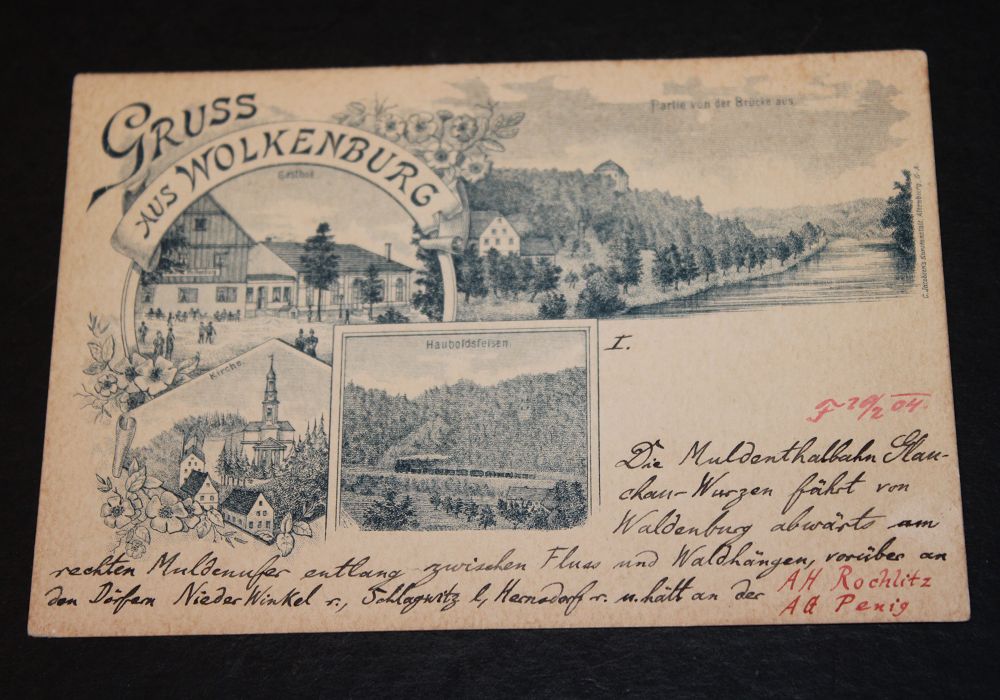 GRUSS
AUS WOLKENBURG
Gasthof
Partie von der Brücke aus.
Kirche.
Hauboldsfelsen.
I.
F 29/2 04.
Die Muldenthalbahn Glau-
chau-Wurzen fährt von
Waldenburg abwärts am
rechten Muldenufer entlang zwischen Fluss und Waldhängen, vorüber an
den Dörfern Nieder Winkel r., Schlagwitz l, Hernsdorf r. u. hält an der
AH Rochlitz
AG Penig
Altenburg, S.-A.